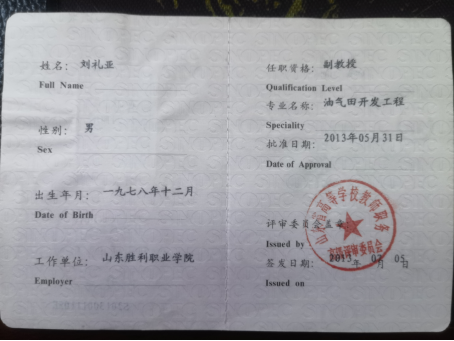 姓名：刘礼亚
Full Name
性别：男
Sex
出生年月：一九七八年十二月
Date of Birth
工作单位：山东胜利职业学院
Employer
任职资格：副教授
Qualification Level
专业名称：油气田开发工程
Speciality
批准日期：2013年05月31日
Date of Approval
评审委员会盖章
Issued by
签发日期：2013年07月05日
Issued on
山东省高等学校教师职务
高级评审委员会